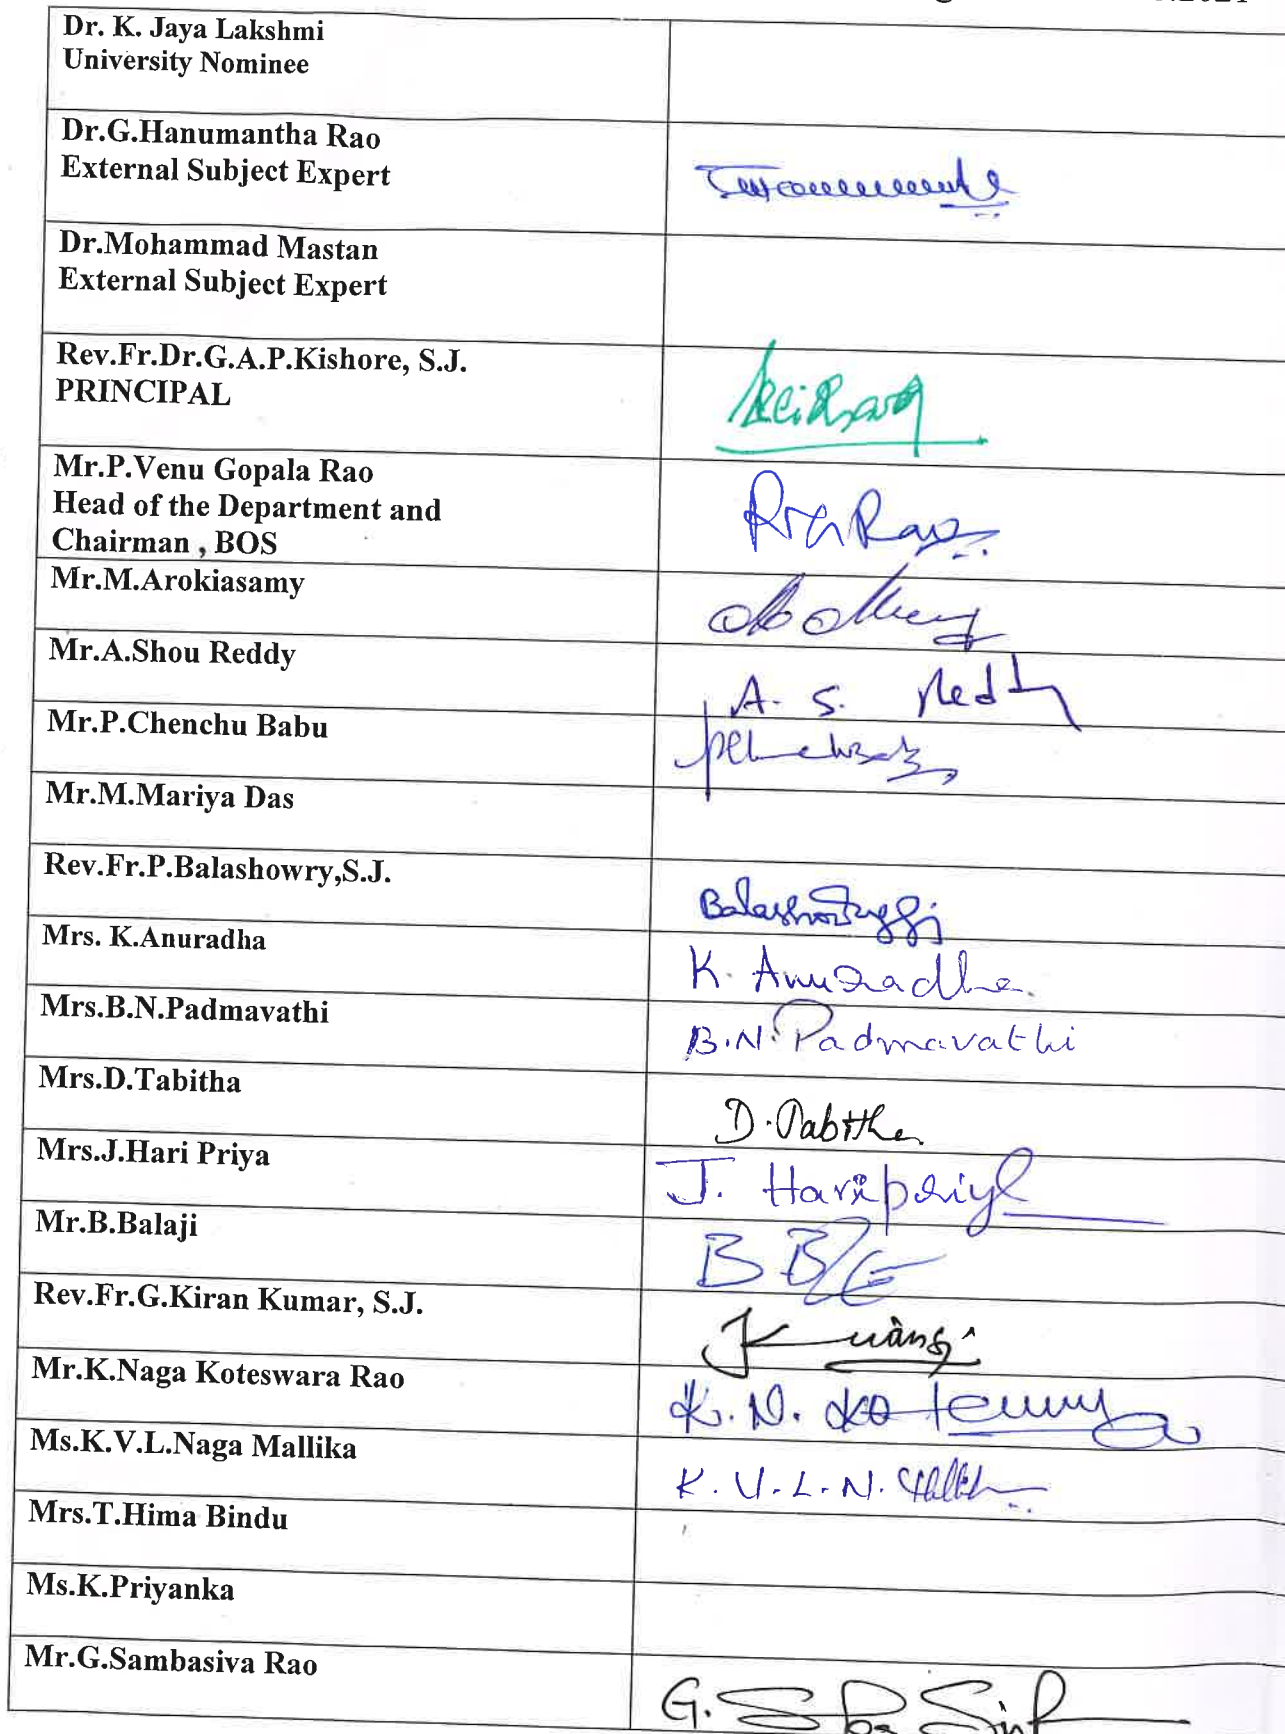 Dr. K. Jaya Lakshmi
University Nominee
Dr.G.Hanumantha Rao
External Subject Expert
Dr.Mohammad Mastan
External Subject Expert
Rev.Fr.Dr.G.A.P.Kishore, S.J.
PRINCIPAL
Mr.P.Venu Gopala Rao
Head of the Department and
Chairman , BOS
Mr.M.Arokiasamy
Mr.A.Shou Reddy
A. S. Reddy
Mr.P.Chenchu Babu
Mr.M.Mariya Das
Rev.Fr.P.Balashowry,S.J.
Mrs. K.Anuradha
K. Anuradha.
Mrs.B.N.Padmavathi
B.N. Padmavathi
Mrs.D.Tabitha
D. Tabitha
Mrs.J.Hari Priya
J. Haripriya
Mr.B.Balaji
Rev.Fr.G.Kiran Kumar, S.J.
Mr.K.Naga Koteswara Rao
K. N.
Ms.K.V.L.Naga Mallika
K. V. L. N.
Mrs.T.Hima Bindu
Ms.K.Priyanka
Mr.G.Sambasiva Rao
G.